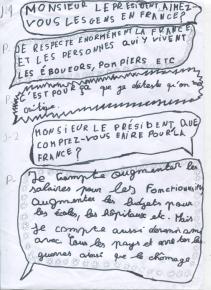 J-1 MONSIEUR LE PRÉSIDENT AIMEZ-
VOUS LES GENS EN FRANCE?
P. JE RESPECTE ENORMÉMENT LA FRANCE
ET LES PERSONNES QUI Y VIVENT
LES ÉBOUEURS, POMPIERS ETC
C'EST POUR ça que je déteste qu'on
critique.
J-2 MONSIEUR LE PRÉSIDENT, QUE
COMPTEZ-VOUS FAIRE POUR LA
FRANCE?
P. Je compte augmenter les
salaires pour les Fonctionnaires
augmenter les budgets pour
les écoles, les hôpitaux etc. Mais
je compte aussi
avec tous les pays et arrêter les
guerres ainsi que le chômage.